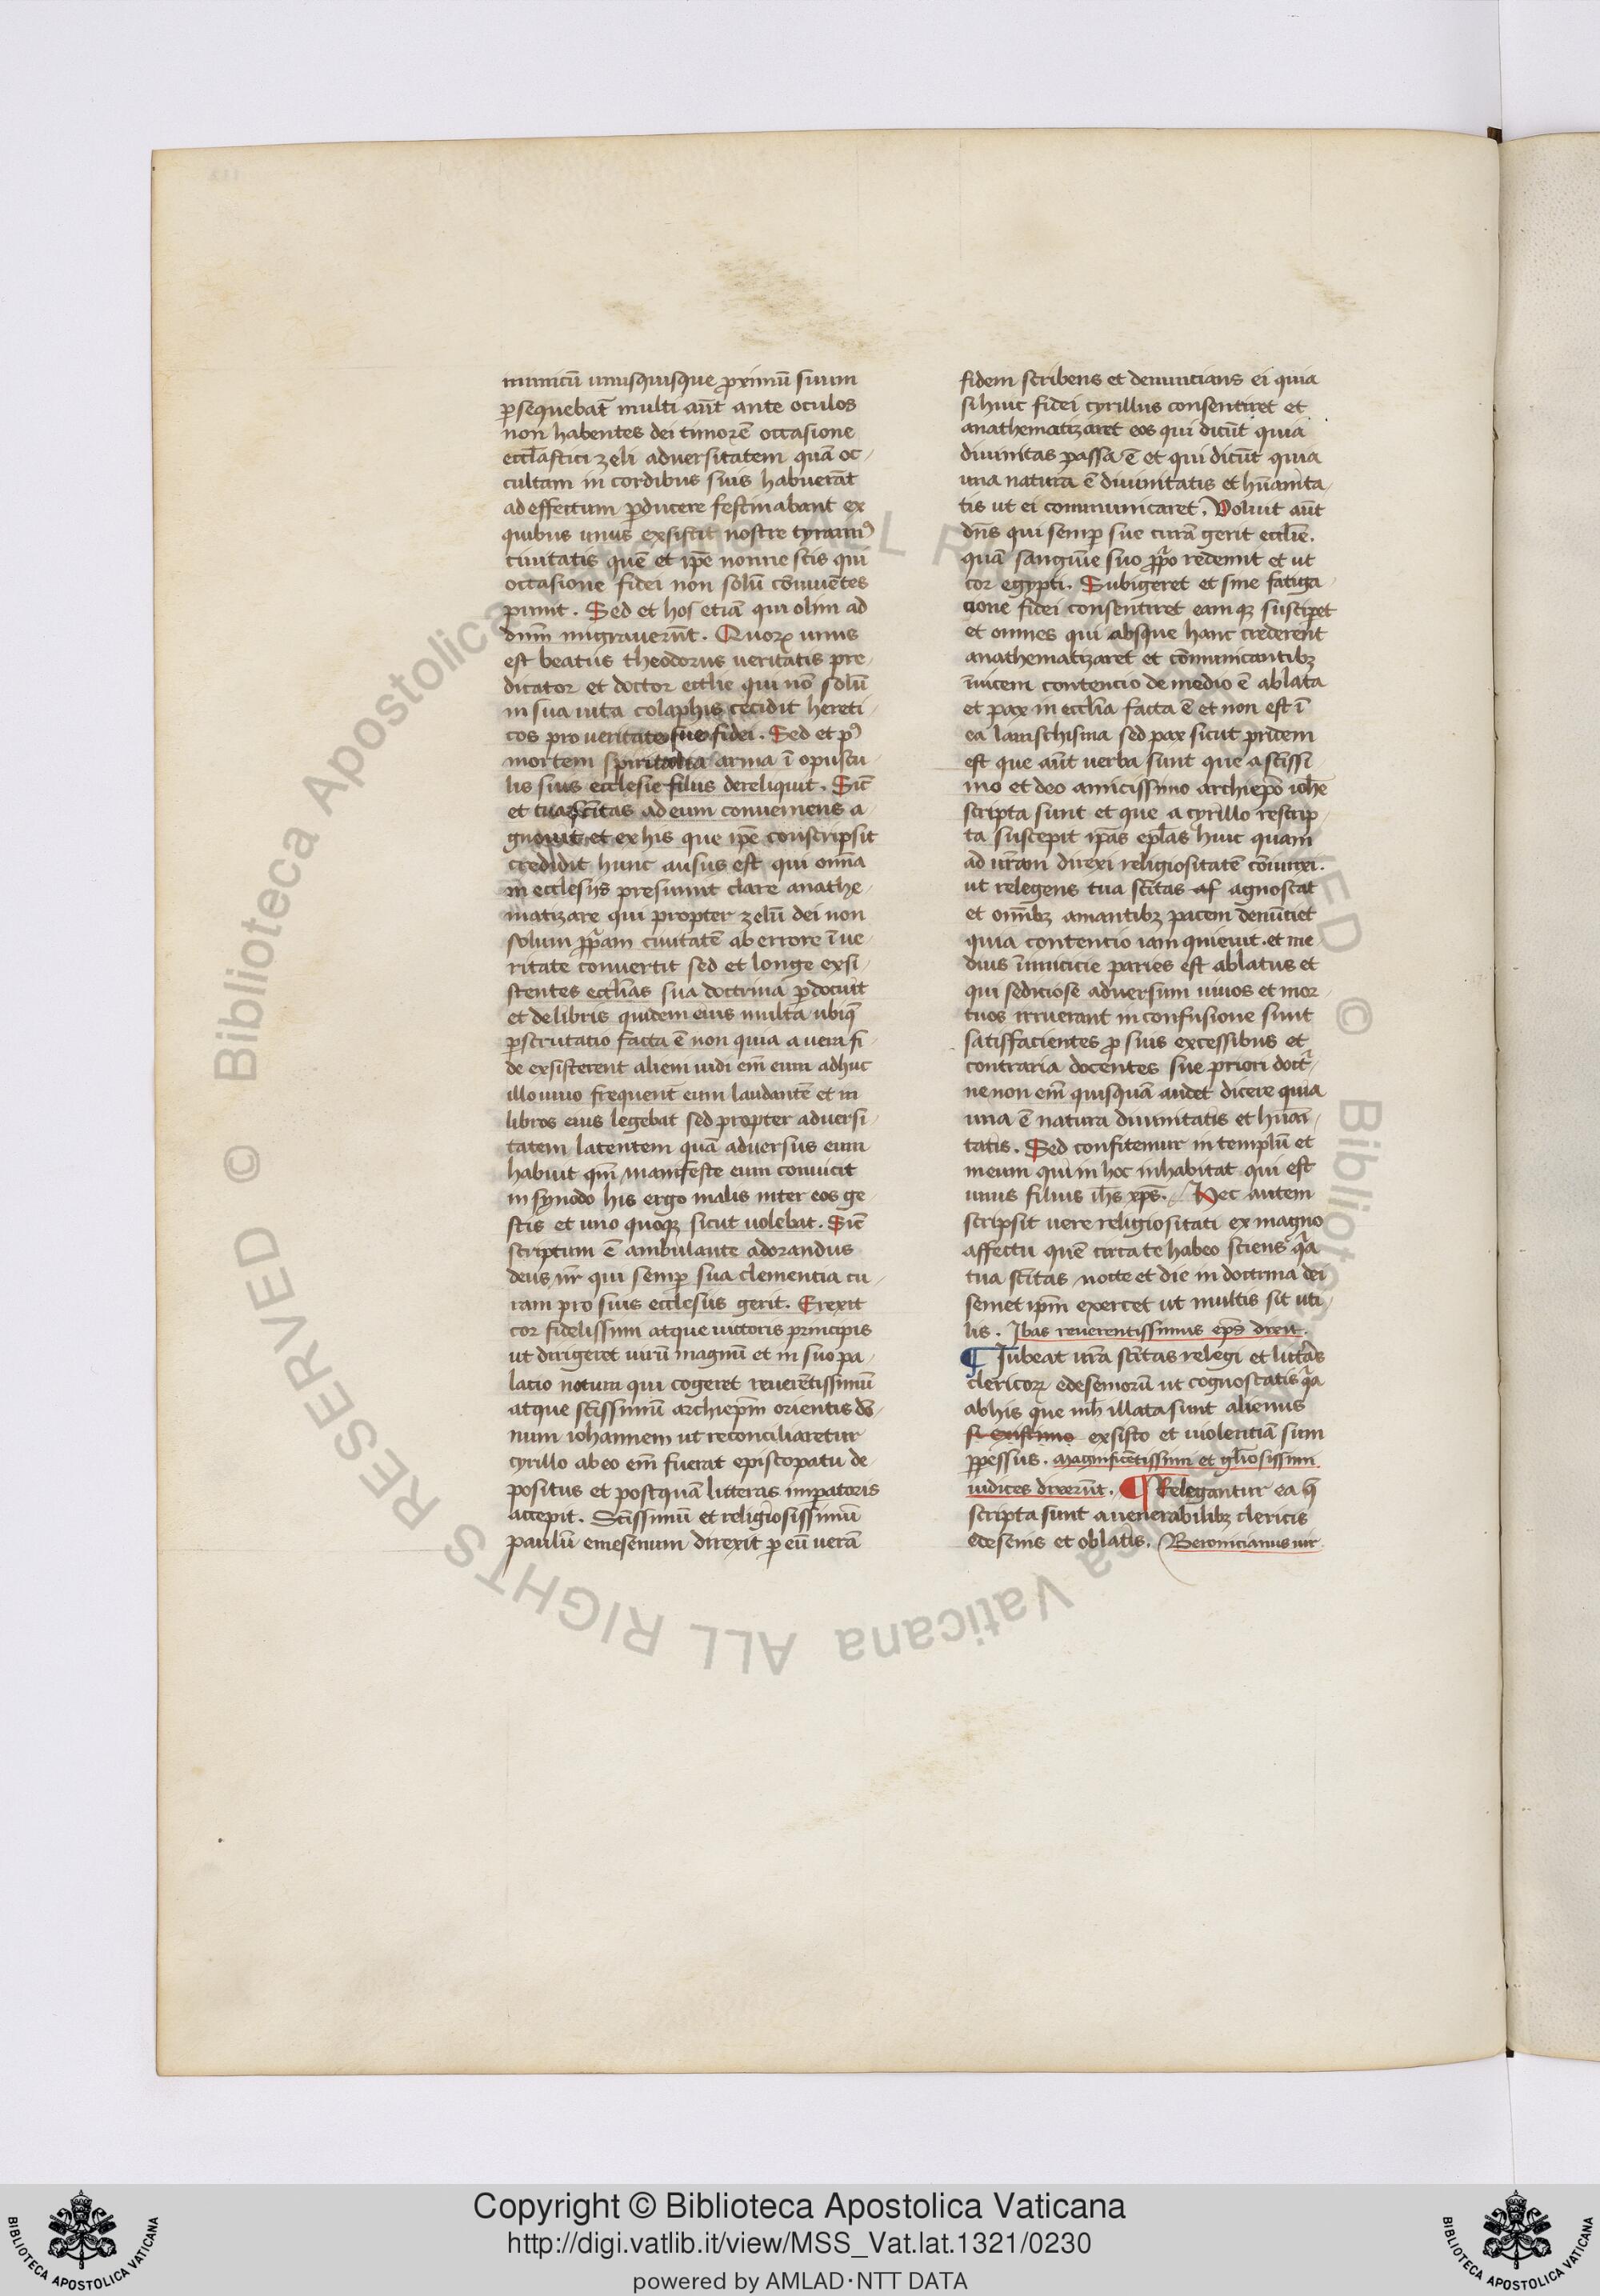 inimicū unusquisque proximū suum
persequebat̄ multi aūt ante oculos
non habentes dei timorē occasione
eccl̄astici zeli adversitatem quā oc-
cultam in cordibus suis habuerāt
ad effectum perducere festinabant ex
quibus unus exsistit nostre tyrann9
civitatis quē et ip̄e nonne scis qui
occasione fidei non solū cōnivētes
punit. Sed et hos etiā qui olim ad
dnm̄ migraverūt. Quorꝝ unus
est beatus theodorus veritatis pre-
dicator et doctor eccl̄ie qui nō solū
in sua vita colaphis cecidit hereti-
cos pro veritate sue fidei. Sed et p9
mortem spiritalia arma ī opuscu-
lis suis ecclesie filiis dereliquit. Sic̄
et tua sc̄itas ad eum conveniens a-
gnovit et ex his que ip̄e conscripsit
credidit hunc ausus est qui om̄ia
in ecclesiis presumit clare anathe-
matizare qui propter zelū dei non
solum ppriam civitatē ab errore ī ve-
ritate convertit sed et longe exsi-
stentes eccl̄ias sua doctrina perdocuit
et de libris quidem eius multa ubiqꝫ
perscrutatio facta ē non quia a vera fi-
de exsisterent alieni vidi em̄ eum adhuc
illo vivo frequent̄ eum laudantē et in
libros eius legebat sed propter adversi-
tatem latentem quā adversus eum
habuit qm̄ manifeste eum convicit
in synodo his ergo malis inter eos ge-
stis et uno quoqꝫ sicut volebat. Sic̄
scriptum ē ambulante adorandus
deus nr̄ qui semper sua clementia cu-
ram pro suis ecclesiis gerit. Erexit
cor fidelissimi atque victoris principis
ut dirigeret virū magnū et in suo pa-
lacio notum qui cogeret reverētissimū
atque sc̄issimū archiepm̄ orientis do-
num iohannem ut reconciliaretur
cyrillo ab eo em̄ fuerat episcopatu de-
positus et postquā litteras imperatoris
accepit. Sc̄issimū et religiosissimū
paulū emesenum direxit per eū verā
fidem scribens et denuncians ei quia
si huic fidei cyrillus consentiret et
anathematizaret eos qui dicūt quia
divinitas passa ē et qui dicūt quia
una natura ē divinitatis et hūanita-
tis ut ei communicaret. Voluit aūt
dn̄s qui semper sue curā gerit eccl̄ie.
quā sanguīe suo pprio redemit et ut
cor egypti. Subigeret et sine fatiga-
cione fidei consentiret eamqꝫ susciperet
et omnes qui absque hanc crederent
anathematizaret et cōmunicantibꝫ
īvicem contencio de medio ē ablata
et pax in eccl̄ia facta ē et non est ī
ea iam schisma sed pax sicut pridem
est que aūt verba sunt que a sc̄issi-
mo et deo amicissimo archiepō ioh̄e
scripta sunt et que a cyrillo rescrip-
ta suscepit ip̄as epl̄as huic quam
ad vr̄am direxi religiositatē cōiunxi.
ut relegens tua sc̄itas af agnoscat
et omībꝫ amantibꝫ pacem denūciet
quia contencio iam quievit. et me-
dius īimicicie paries est ablatus et
qui sediciose adversum vivos et mor-
tuos irruerant in confusione sunt
satisfacientes pro suis excessibus et
contraria docentes sue priori doctri-
ne non em̄ quisquā audet dicere quia
una ē natura divinitatis et hūani-
tatis. Sed confitemur in templū et
in eum qui in hoc inhabitat qui est
unus filius ih̄s xp̄s. Hec autem
scripsit vere religiositati ex magno
affectu quē circa te habeo sciens quia
tua sc̄itas nocte et die in doctrina dei
semet ip̄m exercet ut multis sit uti-
lis. Ibas reverentissimus ep̄s dixit.
¶ Iubeat vr̄a sc̄itas relegi et litt̄as
clericorꝝ edesenorū ut cognoscatis quia
ab his que mīh illata sunt alienus
exsisto et violentiā sum
perpessus. Magnificētissimi et gl̄iosissimi
iudices dixerūt. ¶ Relegantur ea que
scripta sunt a venerabilibꝫ clericis
edesenis et oblatis. Beronicianus vir
© Biblioteca Apostolica Vaticana ALL RIGHTS RESERVED
Copyright © Biblioteca Apostolica Vaticana
http://digi.vatlib.it/view/MSS_Vat.lat.1321/0230
powered by AMLAD·NTT DATA
BIBLIOTECA APOSTOLICA VATICANA
BIBLIOTECA APOSTOLICA VATICANA